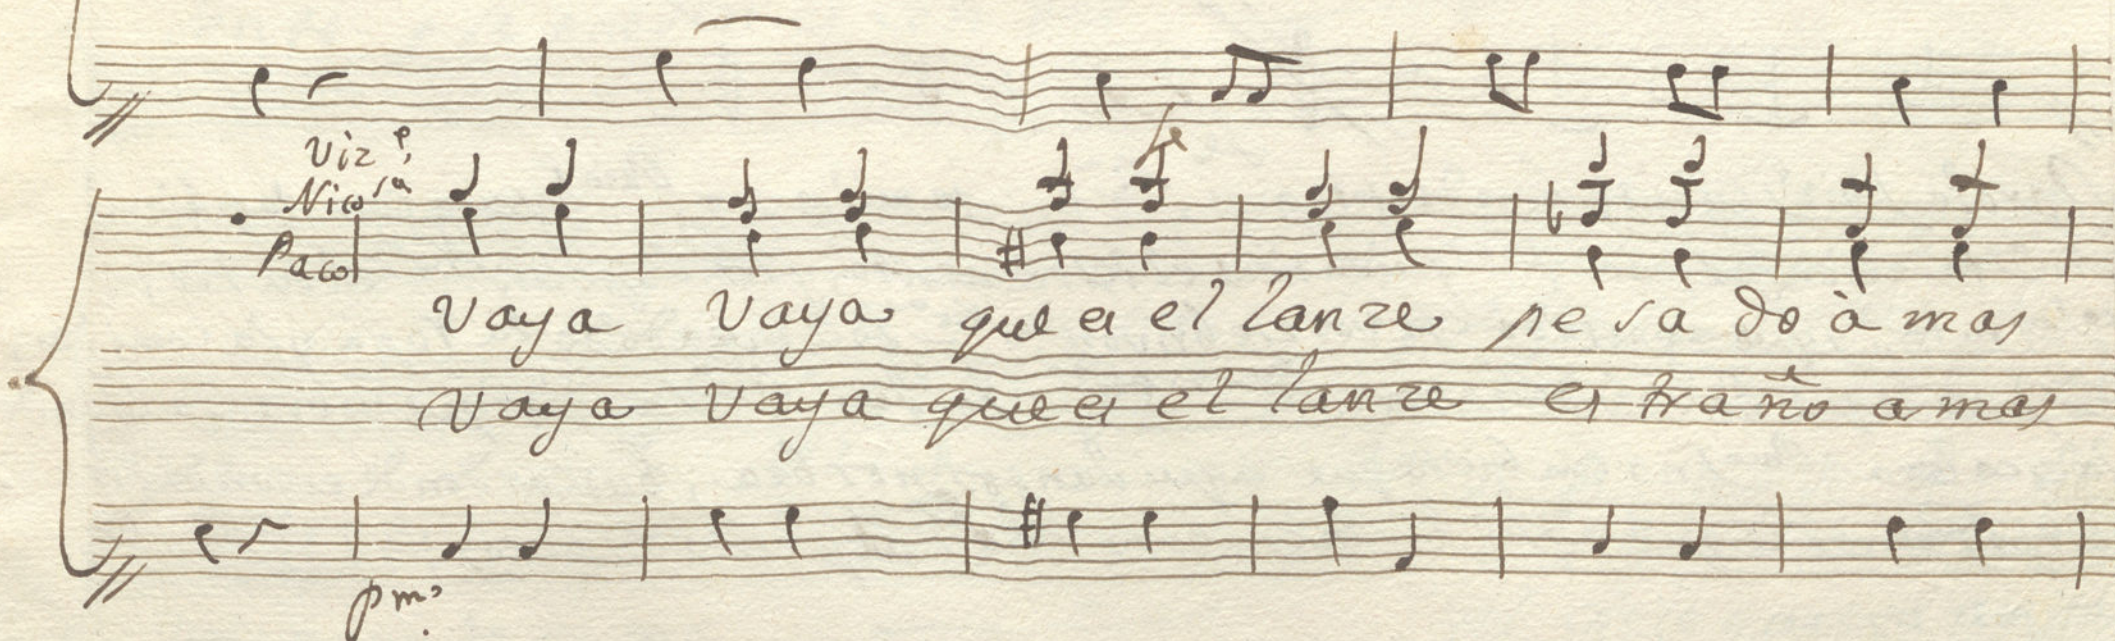 Viz.e
Nicosa
Paco
Vaya Vaya que es el lanze pesado à mas
Vaya Vaya que es el lanze estraño a mas
pmo